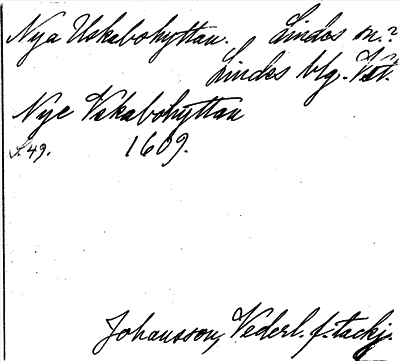 Nya Uskabohyttan. Lindes sn.?
Lindes blg. Vst.
Nye Vskabohyttan
s. 49. 1609.
Johansson, Vederl. f. tackj.